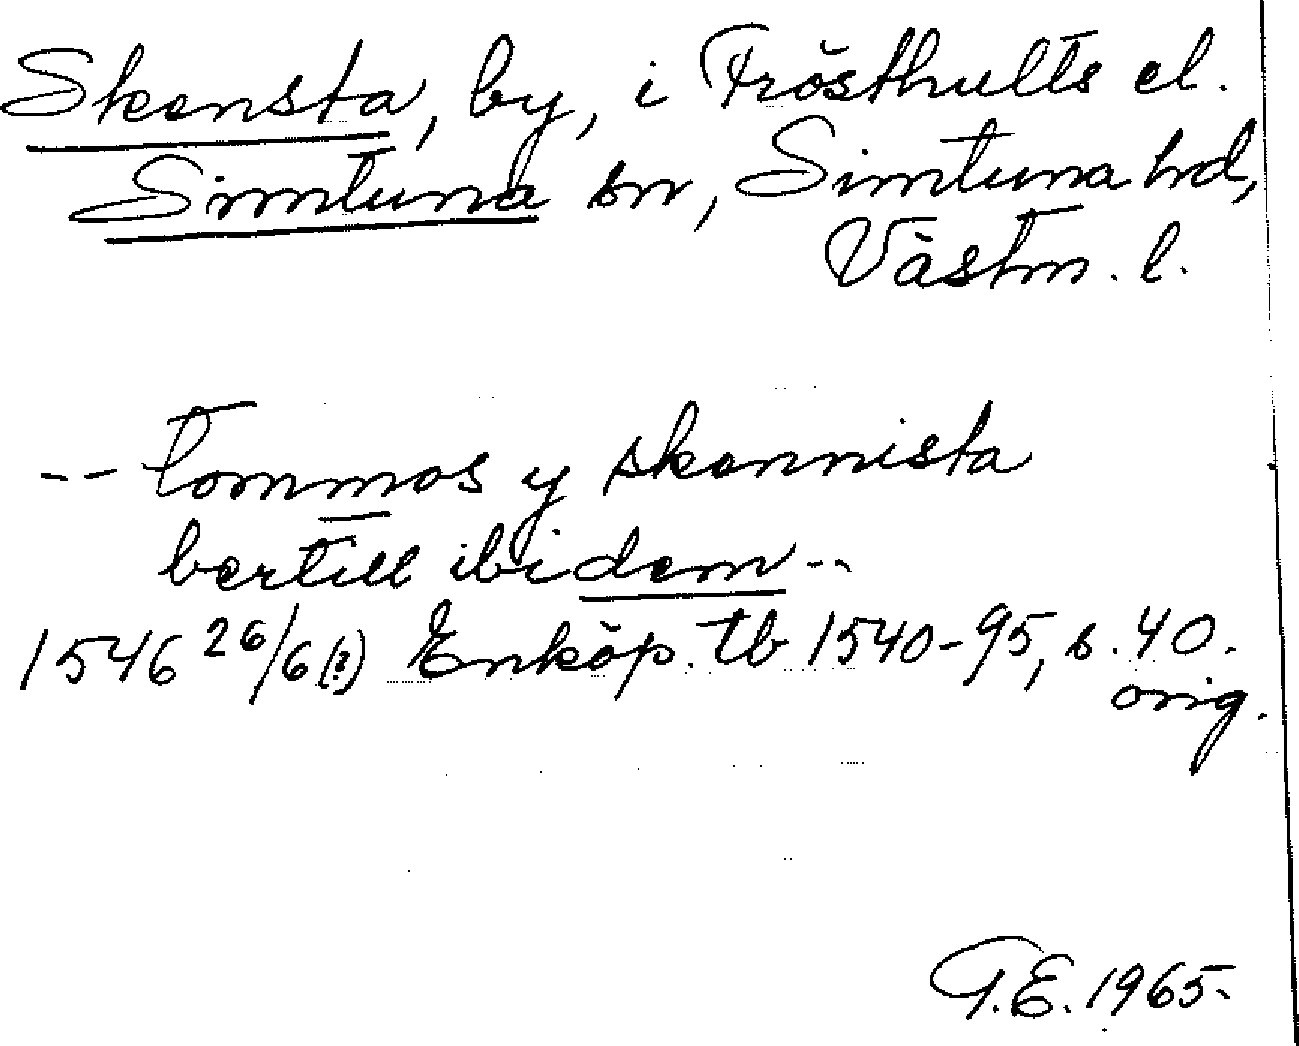 Skensta, by, i Frösthults el.
Simtuna sn, Simtuna hd,
Västm. l.
-- Tommos y skennista
bertill ibidem --
1546 26/6 (?) Enköp. tb 1540-95, s. 40.
orig.
G.E. 1965.